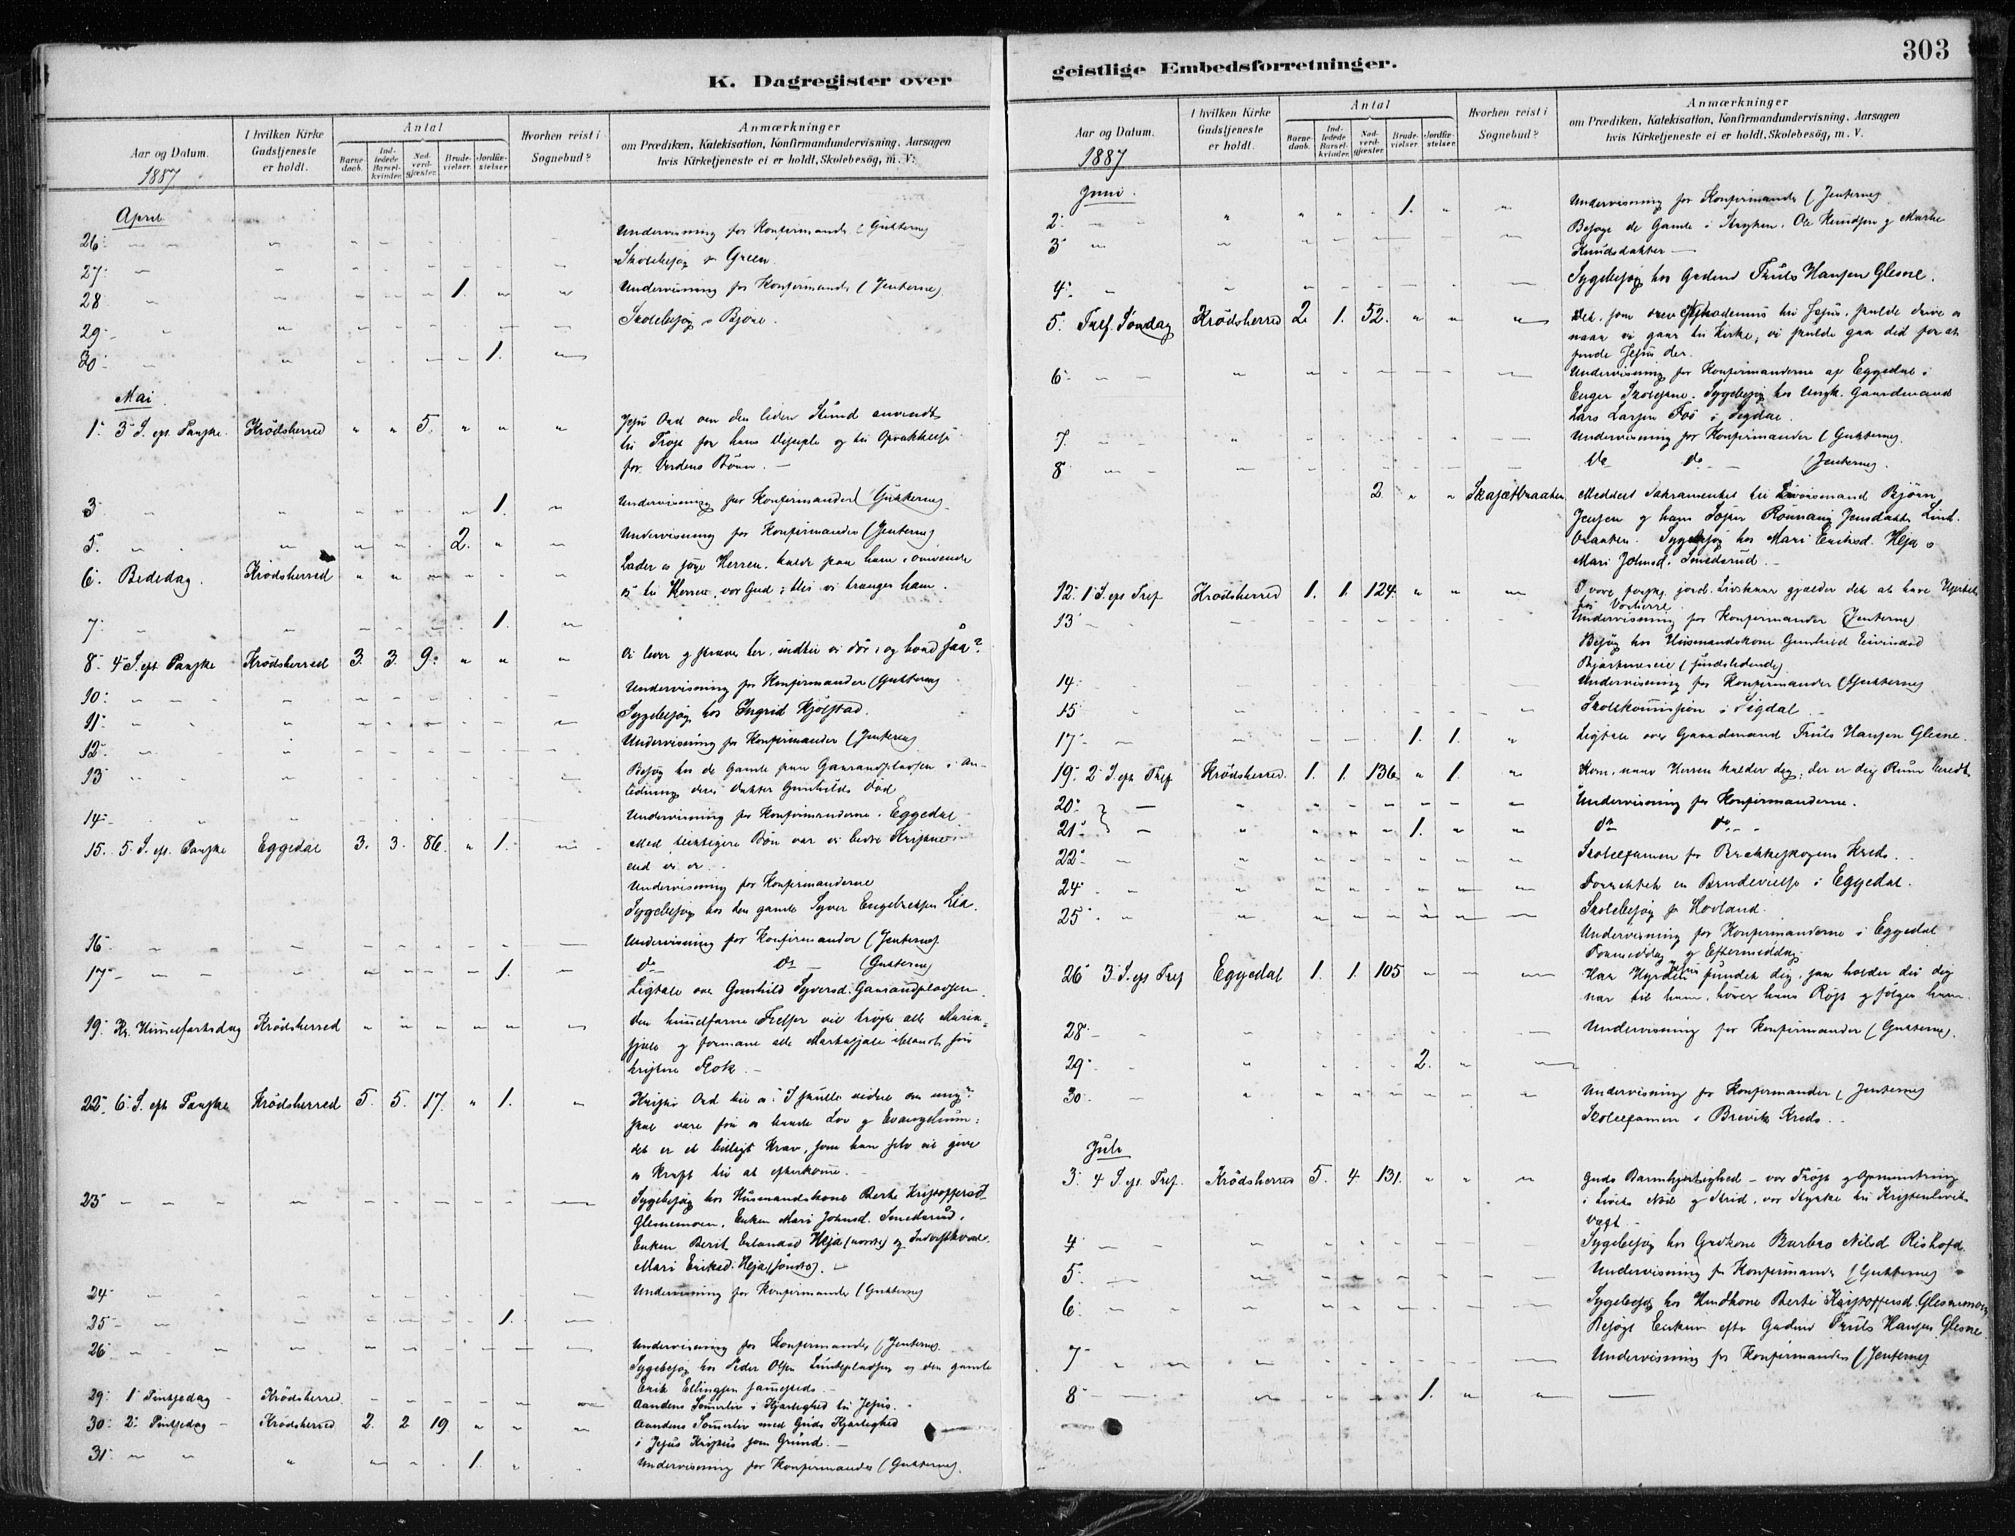 K. Dagregister over
Aar og Datum.
1887.
I hvilken Kirke Gudstjeneste er holdt.
Antal
Barnedaab.
Indledede Barselkvinder.
Nadverdgjæster.
Brudevielser.
Jordfæstelser.
Hvorhen reist i Sognebud?
Anmærkninger
om Prædiken, Katekisation, Konfirmandundervisning, Aarsagen
hvis Kirketjeneste ei er holdt, Skolebesög, m. V.
April
26. Undervisning for Konfirmander (Gutterne)
27. Skolebesøg Green.
28 1. Undervisning for Konfirmander (Jenterne)
29. Skolebesøg
30. 1.
Mai.
1. 3 S. eft. Paaske. Krödsherred 5. Jesu Ord om den liden Stund anvendt
til Trøst for hans Disciple og til Opvækkelse
for Verdens Børn.
3 1. Undervisning for Konfirmander (Gutterne)
5. 2. Undervisning for Konfirmander (Jenterne)
6. Bededag. Krödsherred Lader os søge Herren, kalde paa ham, omvende
os til Herren, vor Gud; thi vi trænger ham.
7. 1.
8. 4 S. eft. Paaske Krödsherred 3. 3. 9. Vi lever og prøver her, indtil vi dør; og hvad saa?
10. Undervisning for Konfirmander (Gutterne)
11. Sygebesøg hos Ingrid Kjølstad.
12. Undervisning for Konfirmander (Jenterne)
13 Besøg hos de Gamle paa Gaarandpladsen i An-
ledning deres Datter Gunhilds Død
14. Undervisning for Konfirmanderne i Eggedal
15. 5. S. eft. Paaske Eggedal 3. 3. 86. 1. Med flittigere Bøn var vi bedre Kristne
end vi er.
Undervisning for Konfirmanderne
Sygebesøg hos den gamle Syver Engebretsen Lia.
16. Undervisning for Konfirmander (Jenterne)
17. 1. do do (Gutterne)
Ligtale over Gunhild Syversd. Gaarandpladsen.
19. Kr. Himmelfartsdag Krödsherred Den himmelfarne Frelser vil trøste alle Maria-
sjæle og formane alle Marthasjæle blandt sin
kristne Flok.
22. 6. S. eft. Paaske Krödsherred 5. 5. 17. 1. Kristi Ord til os: "I skulle vidne om mig"
skal være for os baade Lov og Evangelium;
det er et billigt Krav, som han selv vil give
os Kraft til at efterkomme.
23 Sygebesøg hos Husmandskone Berte Kristoffersd.
Glesnemoen, Enken Mari Johnsd. Smedsrud,
Enken Berit Erlandsd Heja (nordre) og
Mari Eriksd. Heja (søndre).
24 Undervisning for Konfirmander (Gutterne)
25 1.
26 Undervisning for Konfirmander (Jenterne)
Sygebesøg hos Peder Olsen Lindepladsen og den gamle
Erik Ellingsen sammesteds.
29. 1. Pintsedag Krödsherred Aandens Sommerliv i Kjærlighed til Jesus.
30. 2. Pintsedag Krödsherred 2. 2 19 Aandens Sommerliv med Guds Kjærlighed
i Jesus Kristus som Grund.
31. 1. Undervisning for Konfirmander (Gutterne)
geistlige Embedsforretninger.
303
Aar og Datum.
1887
I hvilken Kirke Gudstjeneste er holdt.
Antal
Barnedaab.
Indledede Barselkvinder.
Nadverdgjæster.
Brudevielser.
Jordfæstelser.
Hvorhen reist i Sognebud?
Anmærkninger
om Prædiken, Katekisation, Konfirmandundervisning, Aarsagen
hvis Kirketjeneste ei er holdt, Skolebesög, m. V.
Juni.
2. 1. Undervisning for Konfirmander (Jenterne)
3 Besøge de Gamle i Stryken, Ole Knudsen og Marthe
Knudsdatter
4. Sygebesøg hos Gaardmd Truls Hansen Glesne.
5. Tref. Søndag Krödsherred 2. 1. 52. Det, som drev Nikodemus til Jesus, skulde drive os
naar vi gaar til Kirke; vi skulde gaa did for at
finde Jesus der.
6. Undervisning for Konfirmanderne af Eggedal i
Enger Skolestue. Sygebesøg hos Ungk. Gaardmand
Lars Larsen Fos i Sigdal.
7. Undervisning for Konfirmander (Gutterne)
8 do do (Jenterne).
2 Meddelt Sakramentet til Bjørn
Jensen og hans Søster Jensdatter
Sygebesøg hos Mari Eriksd. Heja o
Mari Johnsd. Smedsrud.
12. 1. S. eft Tref. Krödsherred 1. 1. 124. I vore forskj. jord. Livskaar gjælder det at have Hjertet
hos Vorherre.
13. Undervisning for Konfirmander (Jenterne)
Besøg hos Husmandskone Gunhild Eivindsd
(sindslidende)
14. Undervisning for Konfirmander (Gutterne)
15 Skolekommission i Sigdal
17. 1. 1. Ligtale over Gaardmand Truls Hansen Glesne.
19. 2. S. eft Tref Krödsherred. 1. 1. 136. 1. Kom, naar Herren kalder dig; der er dig Rum beredt.
20. Undervisning for Konfirmanderne.
21. 1. do do
22. Skoleexamen for Brekkeskogens Kreds.
24 Forrettet en Brudevielse i Eggedal.
25 Skolebesøg paa Hovland.
Undervisning for Konfirmanderne i Eggedal
Formiddag og Eftermiddag
26 3. S. eft Tref Eggedal 1. 1. 105 Har Hyrden Jesus fundet dig, saa holder du dig
nær til ham, hører hans Røst og følger ham.
28. Undervisning for Konfirmander (Gutterne).
29. 2.
30. Undervisning for Konfirmander (Jenterne)
Skoleexamen i Breviks Kreds.
Juli
3. 4 S. eft. Tref. Krödsherred 5. 4 131. Guds Barmhjertighed - vor Trøst og Opmuntring
i Livets Nød og Strid, vor Styrke til Kristenlivets
Vægt.
4 Sygebesøg hos Gaardkone Barbro Nilsd Rishofd.
5. Undervisning for Konfirmander (Gutterne)
6. Sygebesøg hos Husmdkone Berte Kristoffersd. Glesnemoen
Besøgt Enken efter Gaardmd Truls Hansen Glesne.
7 Undervisning for Konfirmander (Jenterne)
8 1.